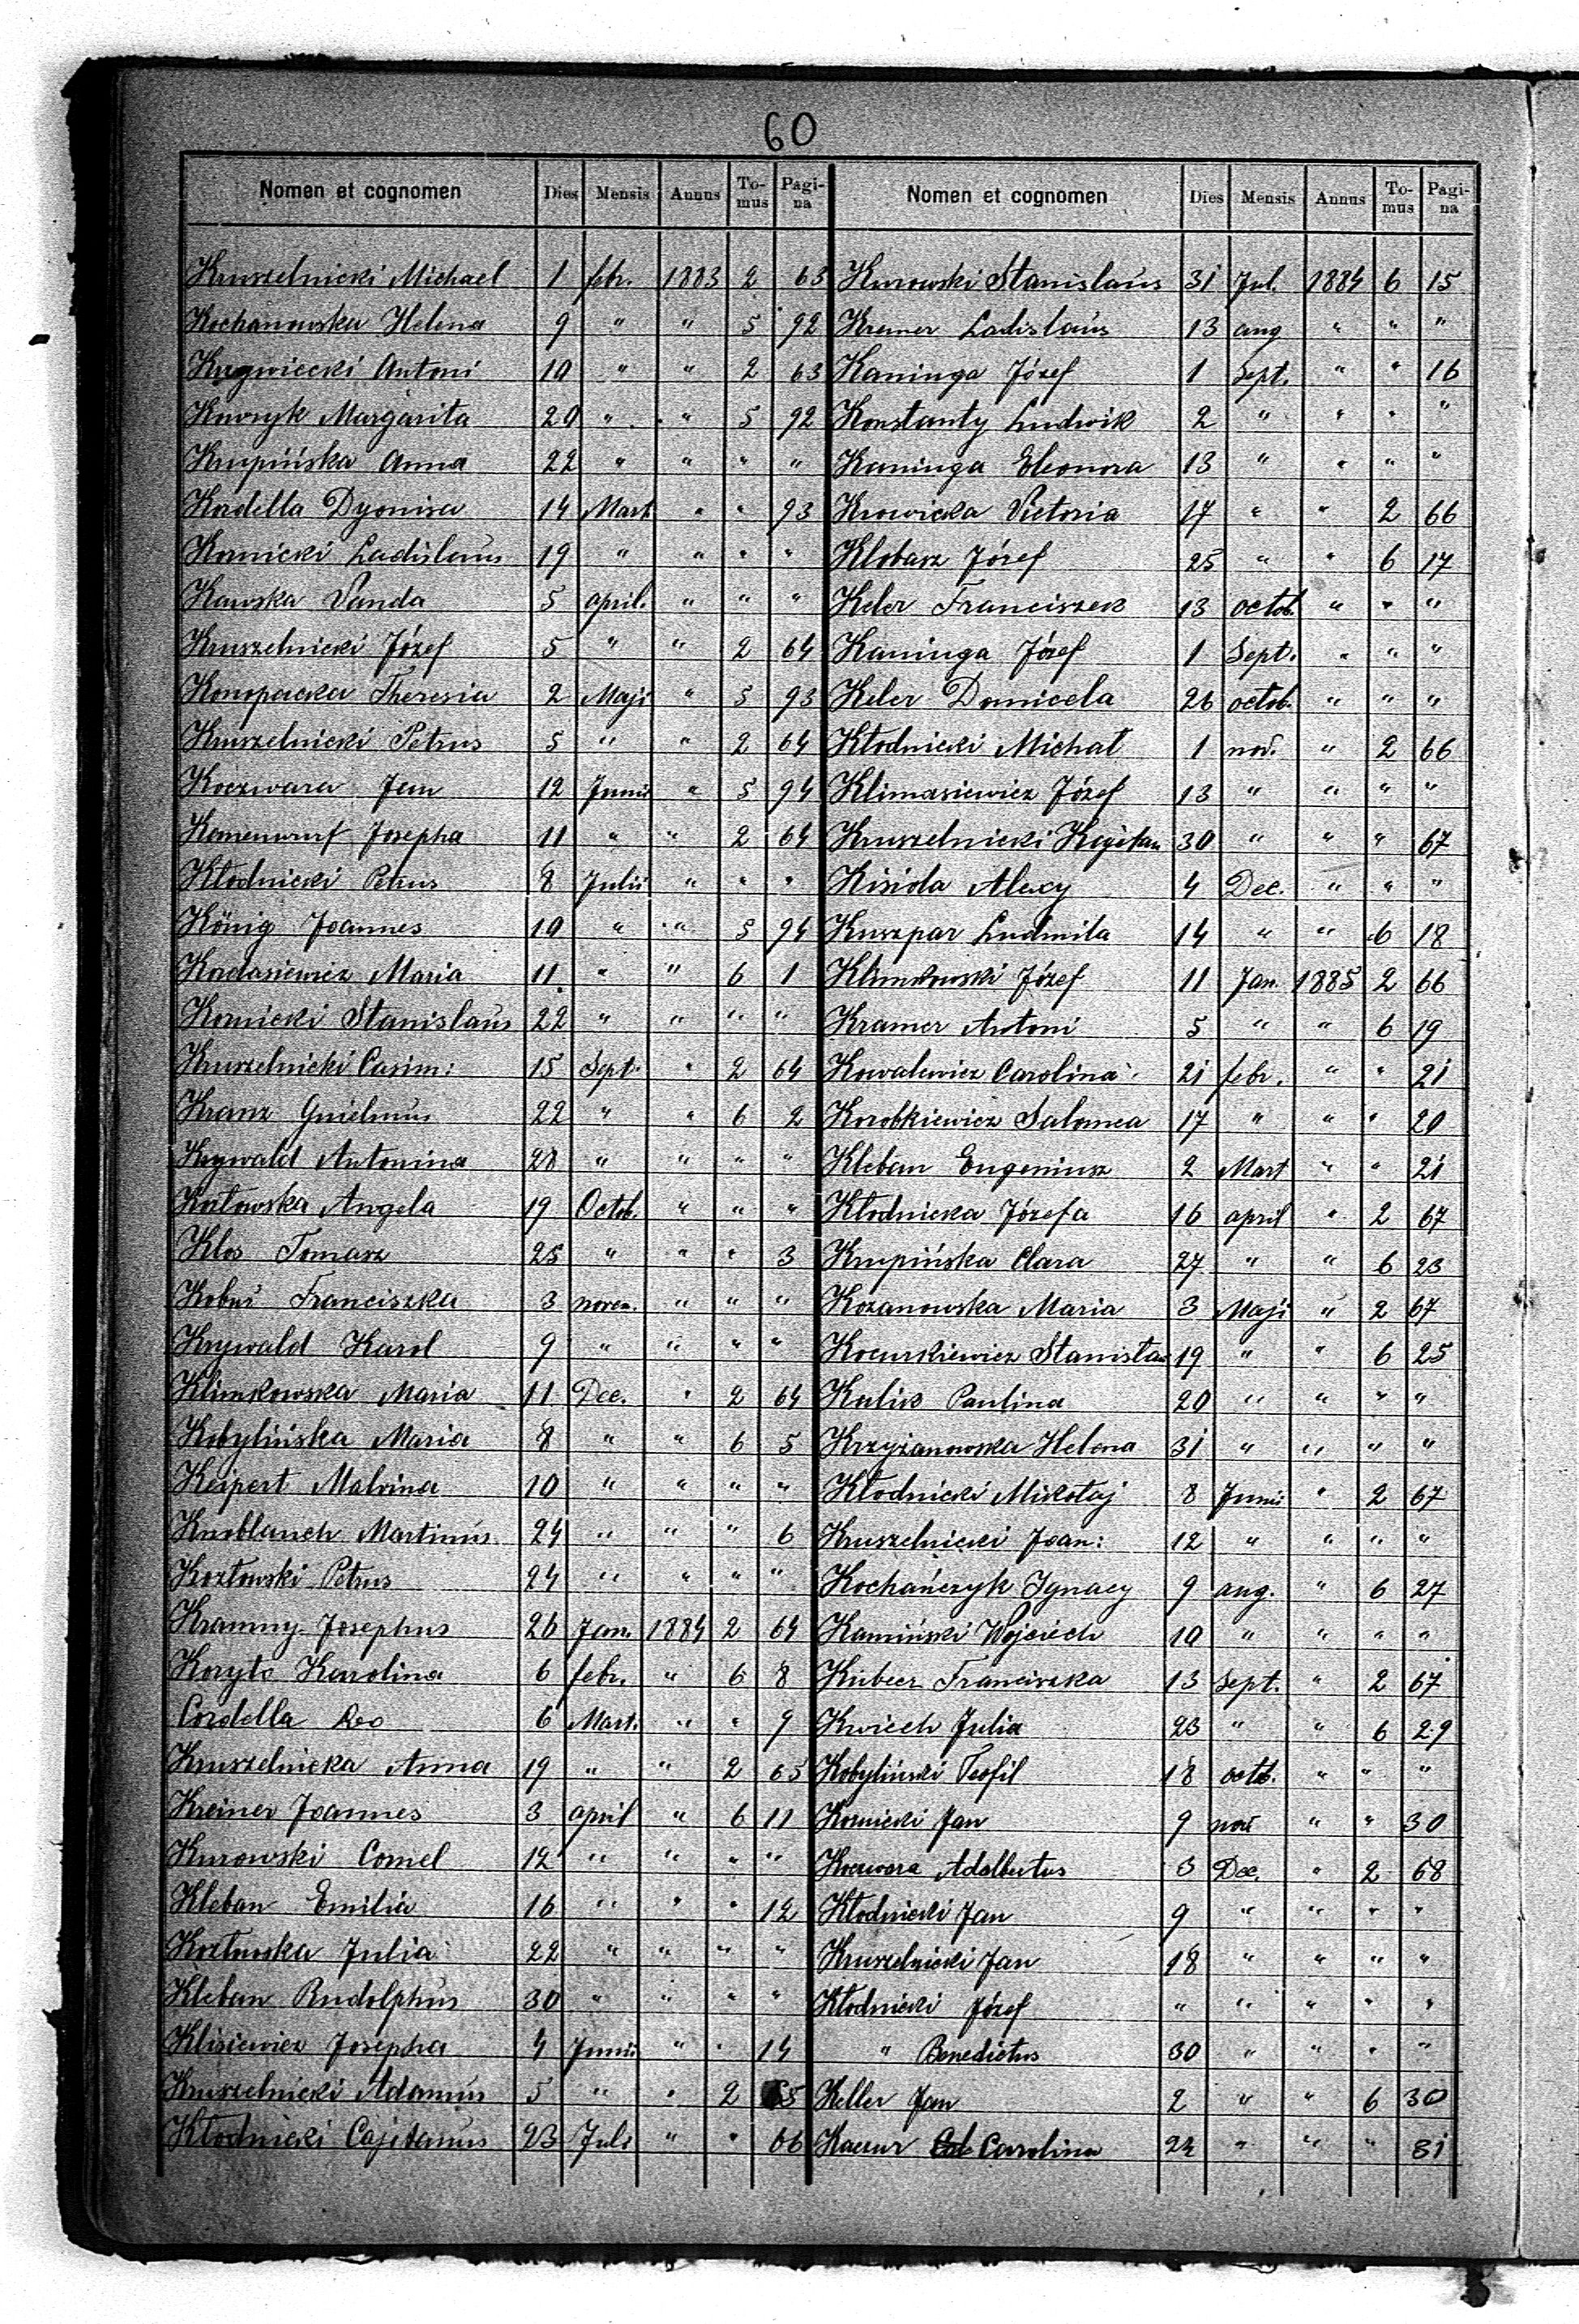 60
Nomen et cognomen Dies Mensis Annus To-mus Pagi-na
Kruszelnicki Michael 1 febr. 1883 2 63
Kochanowska Helena 9 " " 5 92
Krzywiecki Antoni 10 " " 2 63
Kowzyk Margarita 20 " " 5 92
Krupińska Anna 22 " " " "
Kordella Dyonisa 14 Mart " " 93
Kornicki Ladislaus 19 " " " "
Kawska Vanda 5 april. " " "
Kruszelnicki Józef 5 " " 2 64
Konopacka Theresia 2 Maji " 5 93
Kruszelnicki Petrus 5 " " 2 64
Koczwara Jan 12 Junii " 5 94
Josepha 11 " " 2 64
Kłodnicki Petrus 8 Julii " " "
König Joannes 10 " " 5 94
Kordasiewicz Maria 11. " " 6 1
Kornicki Stanislaus 22 " " " "
Kruszelnicki Casim: 15 Sept. " 2 64
Kranz Guielmus 22 " " 6 2
Krywald Antonina 28 " " " "
Kozłowska Angela 19 Octob. " " "
Klos Tomasz 25 " " " 3
Kobuś Franciszka 3 novem. " " "
Krywald Karol 9 " " " "
Klimkowska Maria 11 Dec. " 2 64
Kobylińska Maria 8 " " 6 5
Keipert Malvina 10 " " " "
Knoblauch Martinus 24 " " " 6
Kozłowski Petrus 24 " " " "
Kramny Josephus 26 Jan. 1884 2 64
Koryto Karolina 6 febr. " 6 8
Cordella Leo 6 Mart. " " 9
Kruszelnicka Anna 19 " " 2 65
Kreiner Joannes 3 april " 6 11
Kurowski Cornel 12 " " " "
Kleban Emilia 16 " " " 12
Kozłowska Julia 22 " " " "
Kleban Rudolphus 30 " " " "
Klisiewicz Josepha 4 Junii " " 14
Kruszelnicki Adamus 5 " " 2 65
Kłodnicki Cajetanus 23 Juli " " 66
Nomen et cognomen Dies Mensis Annus To-mus Pagi-na
Kurowski Stanislaus 31 Jul. 1884 6 15
Kremer Ladislaus 13 aug " " "
Kaninga Józef 1 Sept. " " 16
Konstanty Ludwik 2 " " " "
Kaninga Eleonora 13 " " " "
Krowicka Victoria 17 " " 2 66
Klobasz Józef 25 " " 6 17
Keler Franciszek 13 octob. " " "
Kaninga Józef 1 Sept. " " "
Keler Domicela 26 octob. " " "
Kłodnicki Michał 1 nov. " 2 66
Klimasiewicz Józef 13 " " " "
Kruszelnicki Kajetan 30 " " " 67
Kisiola Alexy 4 Dec. " " "
Kuszpar Ludmila 14 " " 6 18
Klimkowski Józef 11 Jan. 1885 2 66
Kramer Antoni 5 " " 6 19
Kowalewicz Carolina 21 febr. " " 21
Korobkiewicz Salomea 17 " " " 20
Kleban Eugeniusz 2 Mart " " 21
Kłodnicka Józefa 16 april " 2 67
Krupińska Clara 27 " " 6 23
Kozanowska Maria 3 Maji " 2 67
Kocurkiewicz Stanisław 19 " " 6 25
Kulik Paulina 20 " " " "
Krzyżanowska Helena 31 " " " "
Kłodnicki Mikołaj 8 Junii " 2 67
Kruszelnicki Joan: 12 " " " "
Kochańczyk Ignacy 9 aug. " 6 27
Kamiński Wojciech 10 " " " "
Kubecz Franciszka 13 Sept. " 2 67
Kwiech Julia 23 " " 6 29
Kobyliński Teofil 18 octob. " " "
Kornicki Jan 9 nov " " 30
Koczwara Adalbertus 3 Dec. " 2 68
Kłodnicki Jan 9 " " " "
Kruszelnicki Jan 18 " " " "
Kłodnicki Józef " " " " "
" Benedictus 30 " " " "
Keller Jan 2 " " 6 30
Kaczur Carolina 24 " " " 31